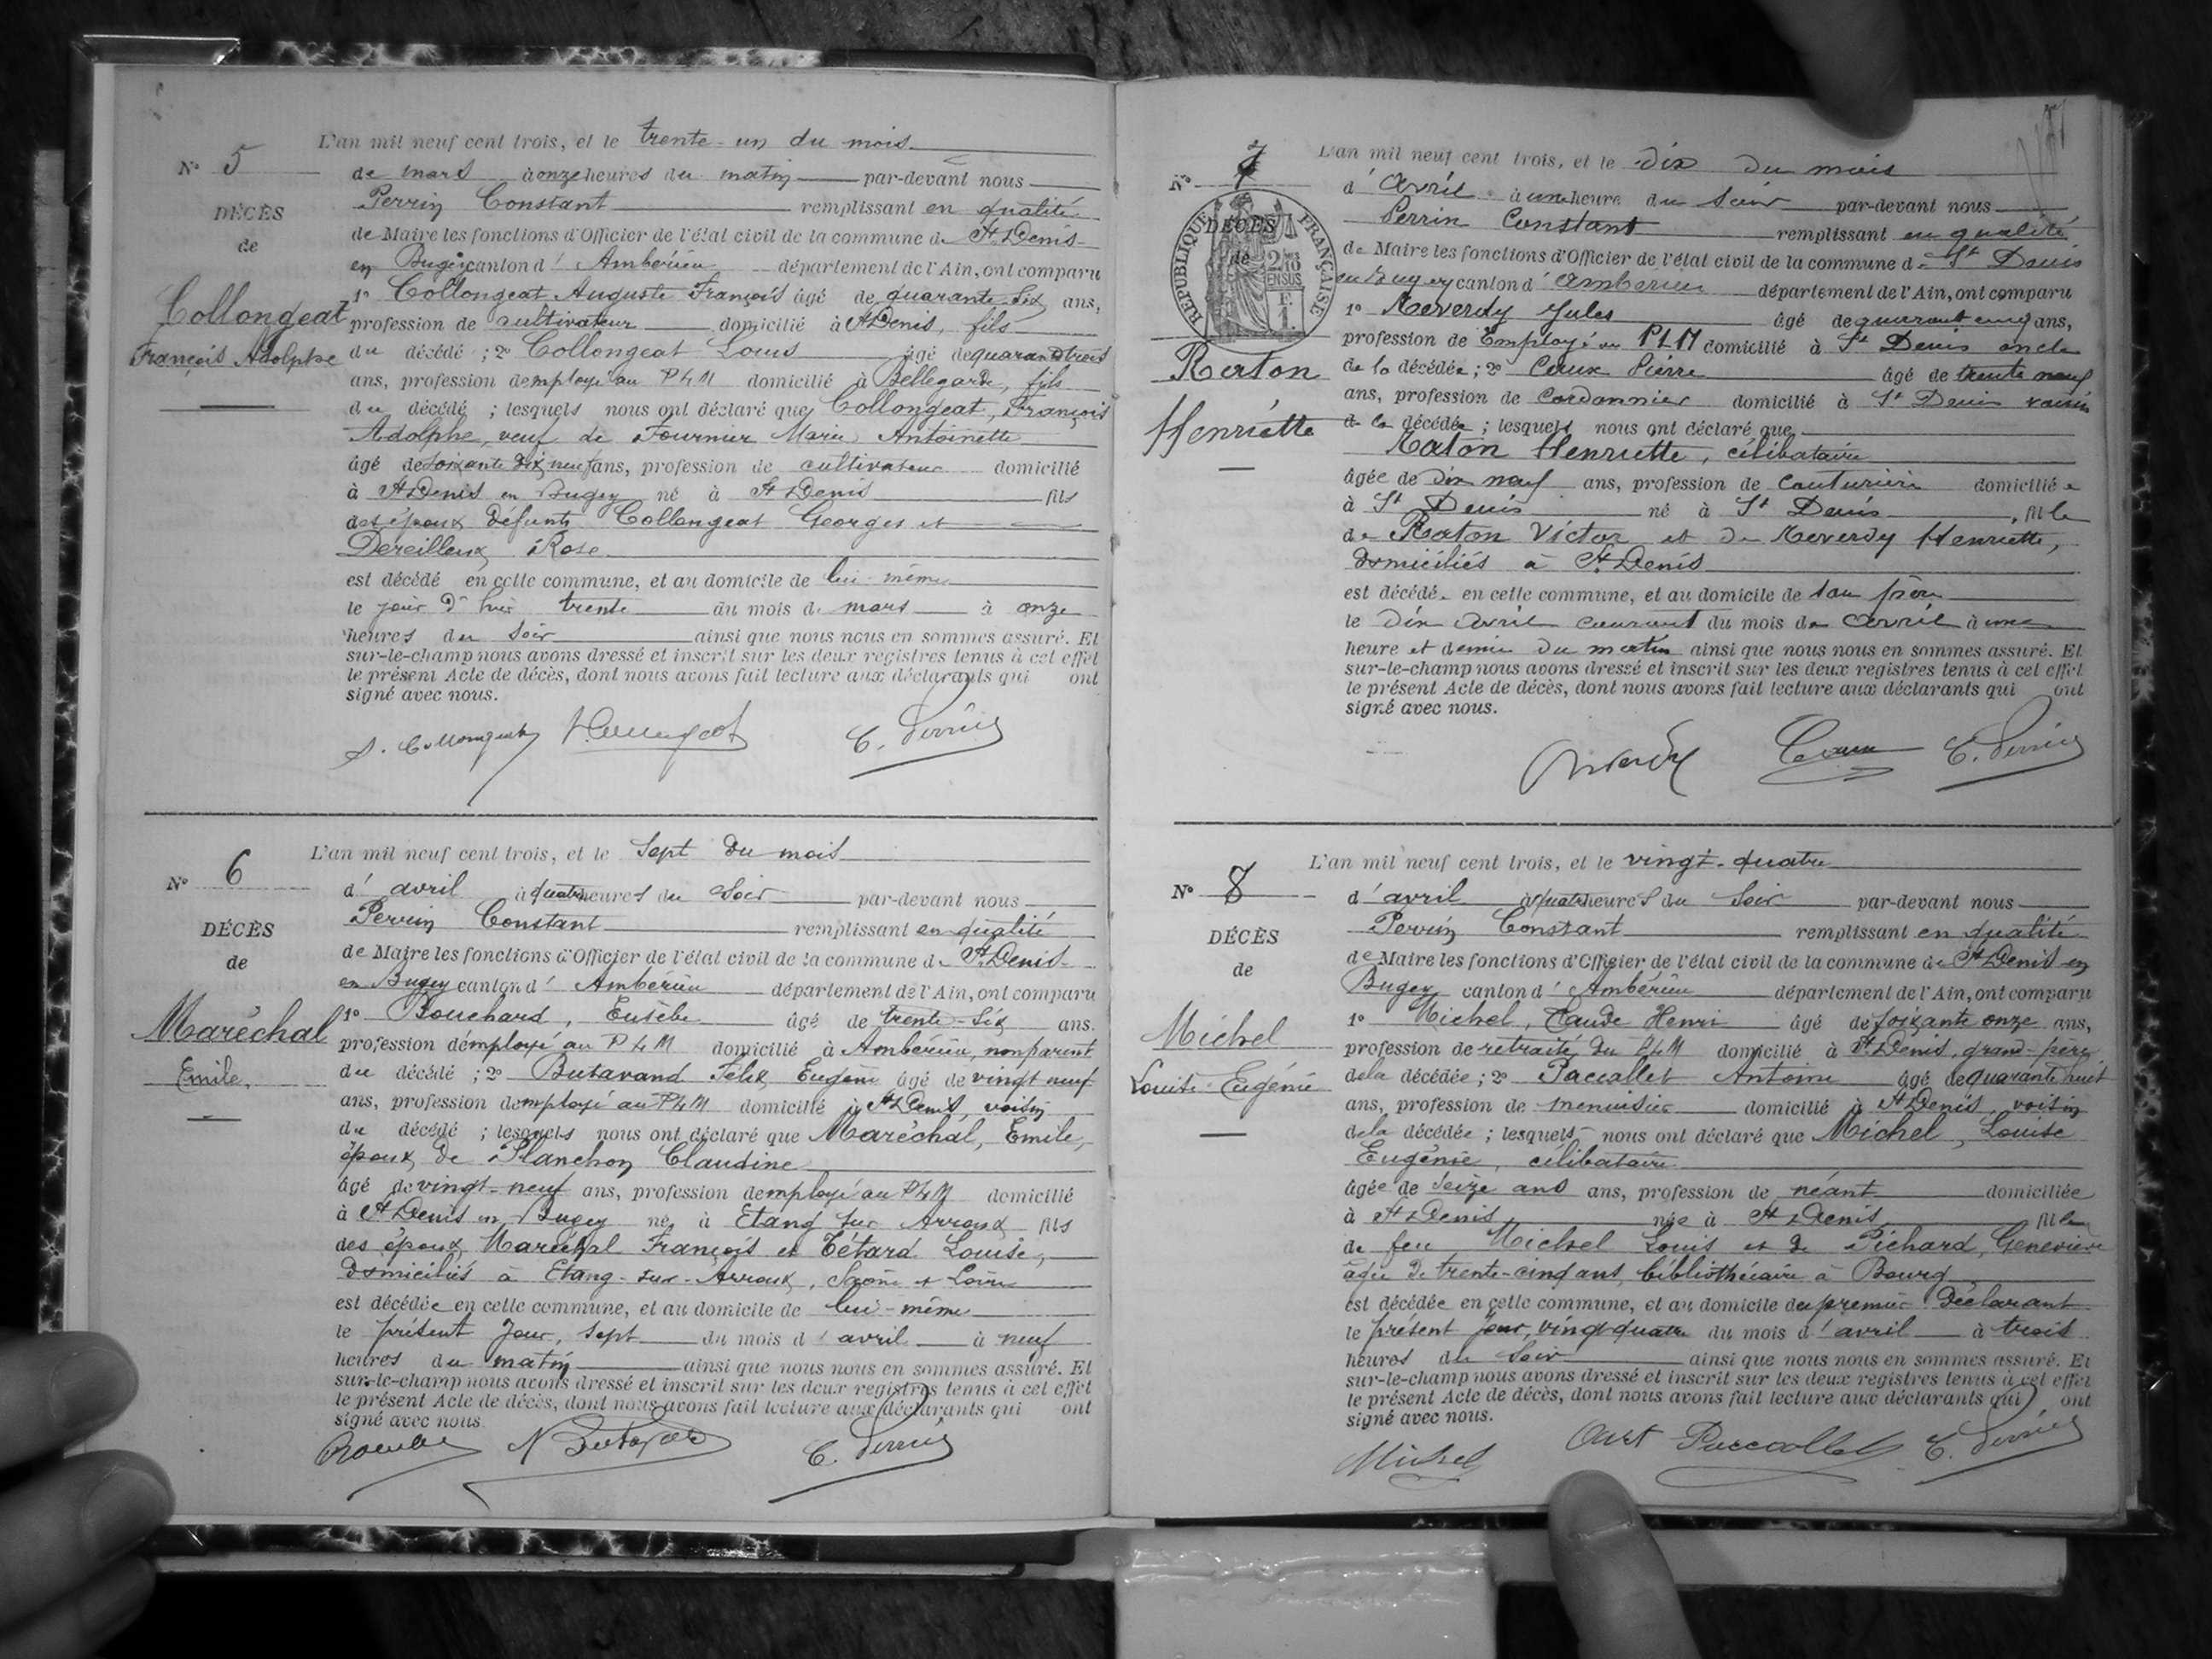 N° 5
DÉCÈS
de
Collongeat
François Adolphe
L'an mil neuf cent trois, et le trente-un du mois
de mars à onze heures du matin par-devant nous
Perrin Constant remplissant en qualité
de Maire les fonctions d'Officier de l'état civil de la commune de St Denis
en Bugey canton d'Ambérieu département de l'Ain, ont comparu
1° Collongeat Auguste François âgé de quarante-six ans,
profession de cultivateur domicilié à St Denis, fils
du décédé ; 2° Collongeat Louis âgé de quarante trois
ans, profession d'employé au PLM domicilié à Bellegarde, fils
du décédé ; lesquels nous ont déclaré que Collongeat, François
Adolphe, veuf de Fournier Marie Antoinette
âgé de soixante dix neuf ans, profession de cultivateur domicilié
à St Denis en Bugey né à St Denis fils
des époux défunts Collongeat Georges et
Dereilleux Rose
est décédé en cette commune, et au domicile de lui-même
le jour d'hier trente du mois de mars à onze
heures du soir ainsi que nous nous en sommes assuré. Et
sur-le-champ nous avons dressé et inscrit sur les deux registres tenus à cet effet
le présent Acte de décès, dont nous avons fait lecture aux déclarants qui ont
signé avec nous.
C. Perrin
N° 6
DÉCÈS
de
Maréchal
Emile,
L'an mil neuf cent trois, et le sept du mois
d'avril à quatre heures du soir par-devant nous
Perrin Constant remplissant en qualité
de Maire les fonctions d'Officier de l'état civil de la commune de St Denis
en Bugey canton d'Ambérieu département de l'Ain, ont comparu
1° Bouchard, Eusèbe âgé de trente-six ans.
profession d'employé au PLM domicilié à Ambérieu, non parent
du décédé ; 2° Butavand Félix Eugène âgé de vingt neuf
ans, profession d'employé au PLM domicilié à St Denis, voisin
du décédé ; lesquels nous ont déclaré que Maréchal, Emile,
époux de Planchon Claudine
âgé de vingt-neuf ans, profession d'employé au PLM domicilié
à St Denis en Bugey né à Etang sur Arroux fils
des époux Maréchal François et Tétard Louise,
domiciliés à Etang-sur-Arroux, Saône et Loire
est décédée en cette commune, et au domicile de lui-même
le présent jour, sept du mois d'avril à neuf
heures du matin ainsi que nous nous en sommes assuré. Et
sur-le-champ nous avons dressé et inscrit sur les deux registres tenus à cet effet
le présent Acte de décès, dont nous avons fait lecture aux déclarants qui ont
signé avec nous.
C. Perrin
N° 7
DÉCÈS
de
RÉPUBLIQUE FRANÇAISE
Raton
Henriette
L'an mil neuf cent trois, et le dix du mois
d'Avril à une heure du soir par-devant nous
Perrin Constant remplissant en qualité
de Maire les fonctions d'Officier de l'état civil de la commune de St Denis
en Bugey canton d'Ambérieu département de l'Ain, ont comparu
1° Reverdy Jules âgé de quarante cinq ans,
profession de Employé au PLM domicilié à St Denis oncle
de la décédée ; 2° Caux Pierre âgé de trente neuf
ans, profession de Cordonnier domicilié à St Denis voisin
de la décédée ; lesquels nous ont déclaré que
Raton Henriette, célibataire
âgée de dix neuf ans, profession de Couturière domiciliée
à St Denis né à St Denis, fille
de Raton Victor et de Reverdy Henriette,
domiciliés à St Denis
est décédée en cette commune, et au domicile de son père
le dix avril courant du mois de avril à une
heure et demie du matin ainsi que nous nous en sommes assuré. Et
sur-le-champ nous avons dressé et inscrit sur les deux registres tenus à cet effet
le présent Acte de décès, dont nous avons fait lecture aux déclarants qui ont
signé avec nous.
C. Perrin
N° 8
DÉCÈS
de
Michel
Louise Eugénie
L'an mil neuf cent trois, et le vingt-quatre
d'avril à quatre heures du soir par-devant nous
Perrin Constant remplissant en qualité
de Maire les fonctions d'Officier de l'état civil de la commune de St Denis en
Bugey canton d'Ambérieu département de l'Ain, ont comparu
1° Michel, Claude Henri âgé de soixante onze ans,
profession de retraité du PLM domicilié à St Denis, grand-père
de la décédée ; 2° Paccallet Antoine âgé de quarante huit
ans, profession de menuisier domicilié à St Denis, voisin
de la décédée ; lesquels nous ont déclaré que Michel, Louise
Eugénie, célibataire
âgée de seize ans ans, profession de néant domiciliée
à St Denis née à St Denis fille
de feu Michel Louis et de Pichard, Geneviève
âgée de trente-cinq ans, bibliothécaire à Bourg
est décédée en cette commune, et au domicile du premier Déclarant
le présent jour, vingt quatre du mois d'avril à trois
heures du soir ainsi que nous nous en sommes assuré. Et
sur-le-champ nous avons dressé et inscrit sur les deux registres tenus à cet effet
le présent Acte de décès, dont nous avons fait lecture aux déclarants qui ont
signé avec nous.
Michel Paccallet C. Perrin